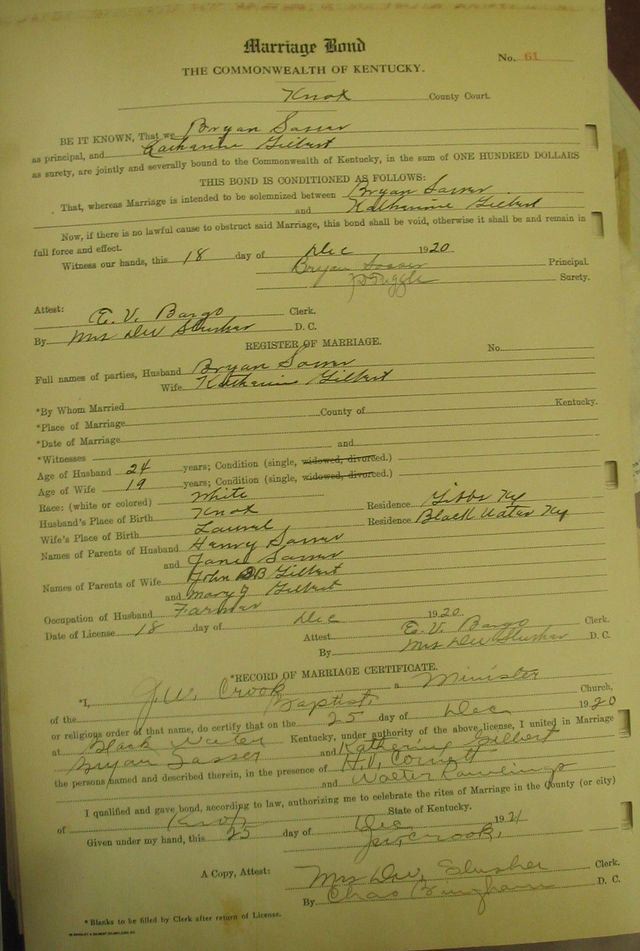 Marriage Bond
No. 61
THE COMMONWEALTH OF KENTUCKY.
Knox County Court.
BE IT KNOWN, That we Bryan Sasser
as principal, and Katharine Gilbert
as surety, are jointly and severally bound to the Commonwealth of Kentucky, in the sum of ONE HUNDRED DOLLARS
THIS BOND IS CONDITIONED AS FOLLOWS:
That, whereas Marriage is intended to be solemnized between Bryan Sasser
and Katherine Gilbert
Now, if there is no lawful cause to obstruct said Marriage, this bond shall be void, otherwise it shall be and remain in
full force and effect.
Witness our hands, this 18 day of Dec 1920
Bryan Sasser Principal.
Tuggle Surety.
Attest: E. V. Bargo Clerk.
By Mrs Dew Slusher D. C.
REGISTER OF MARRIAGE.
Full names of parties, Husband Bryan Sasser No.
Wife Katherine Gilbert
*By Whom Married County of Kentucky.
*Place of Marriage
*Date of Marriage
*Witnesses and
Age of Husband 24 years; Condition (single, widowed, divorced.)
Age of Wife 19 years; Condition (single, widowed, divorced.)
Race: (white or colored) White
Husband's Place of Birth Knox Residence Gibbs Ky
Wife's Place of Birth Laurel Residence Black Water Ky
Names of Parents of Husband Henry Sasser
and Jane Sasser
Names of Parents of Wife John B Gilbert
and Mary J Gilbert
Occupation of Husband Farmer
Date of License 18 day of Dec 1920
Attest: E. V. Bargo Clerk.
By Mrs Dew Slusher D. C.
*RECORD OF MARRIAGE CERTIFICATE.
*I, J. W. Crook a Minister
of the Baptist Church,
or religious order of that name, do certify that on the 25 day of Dec 1920
at Black Water Kentucky, under authority of the above license, I united in Marriage
Bryan Sasser and Katherine Gilbert
the persons named and described therein, in the presence of H. V. Cornett
and Walter Rawlings
I qualified and gave bond, according to law, authorizing me to celebrate the rites of Marriage in the County (or city)
of Knox State of Kentucky.
Given under my hand, this 25 day of Dec 1921
J. W. Crook,
A Copy, Attest: Mrs Dew Slusher Clerk.
By Chas Bingham D. C.
* Blanks to be filled by Clerk after return of License.